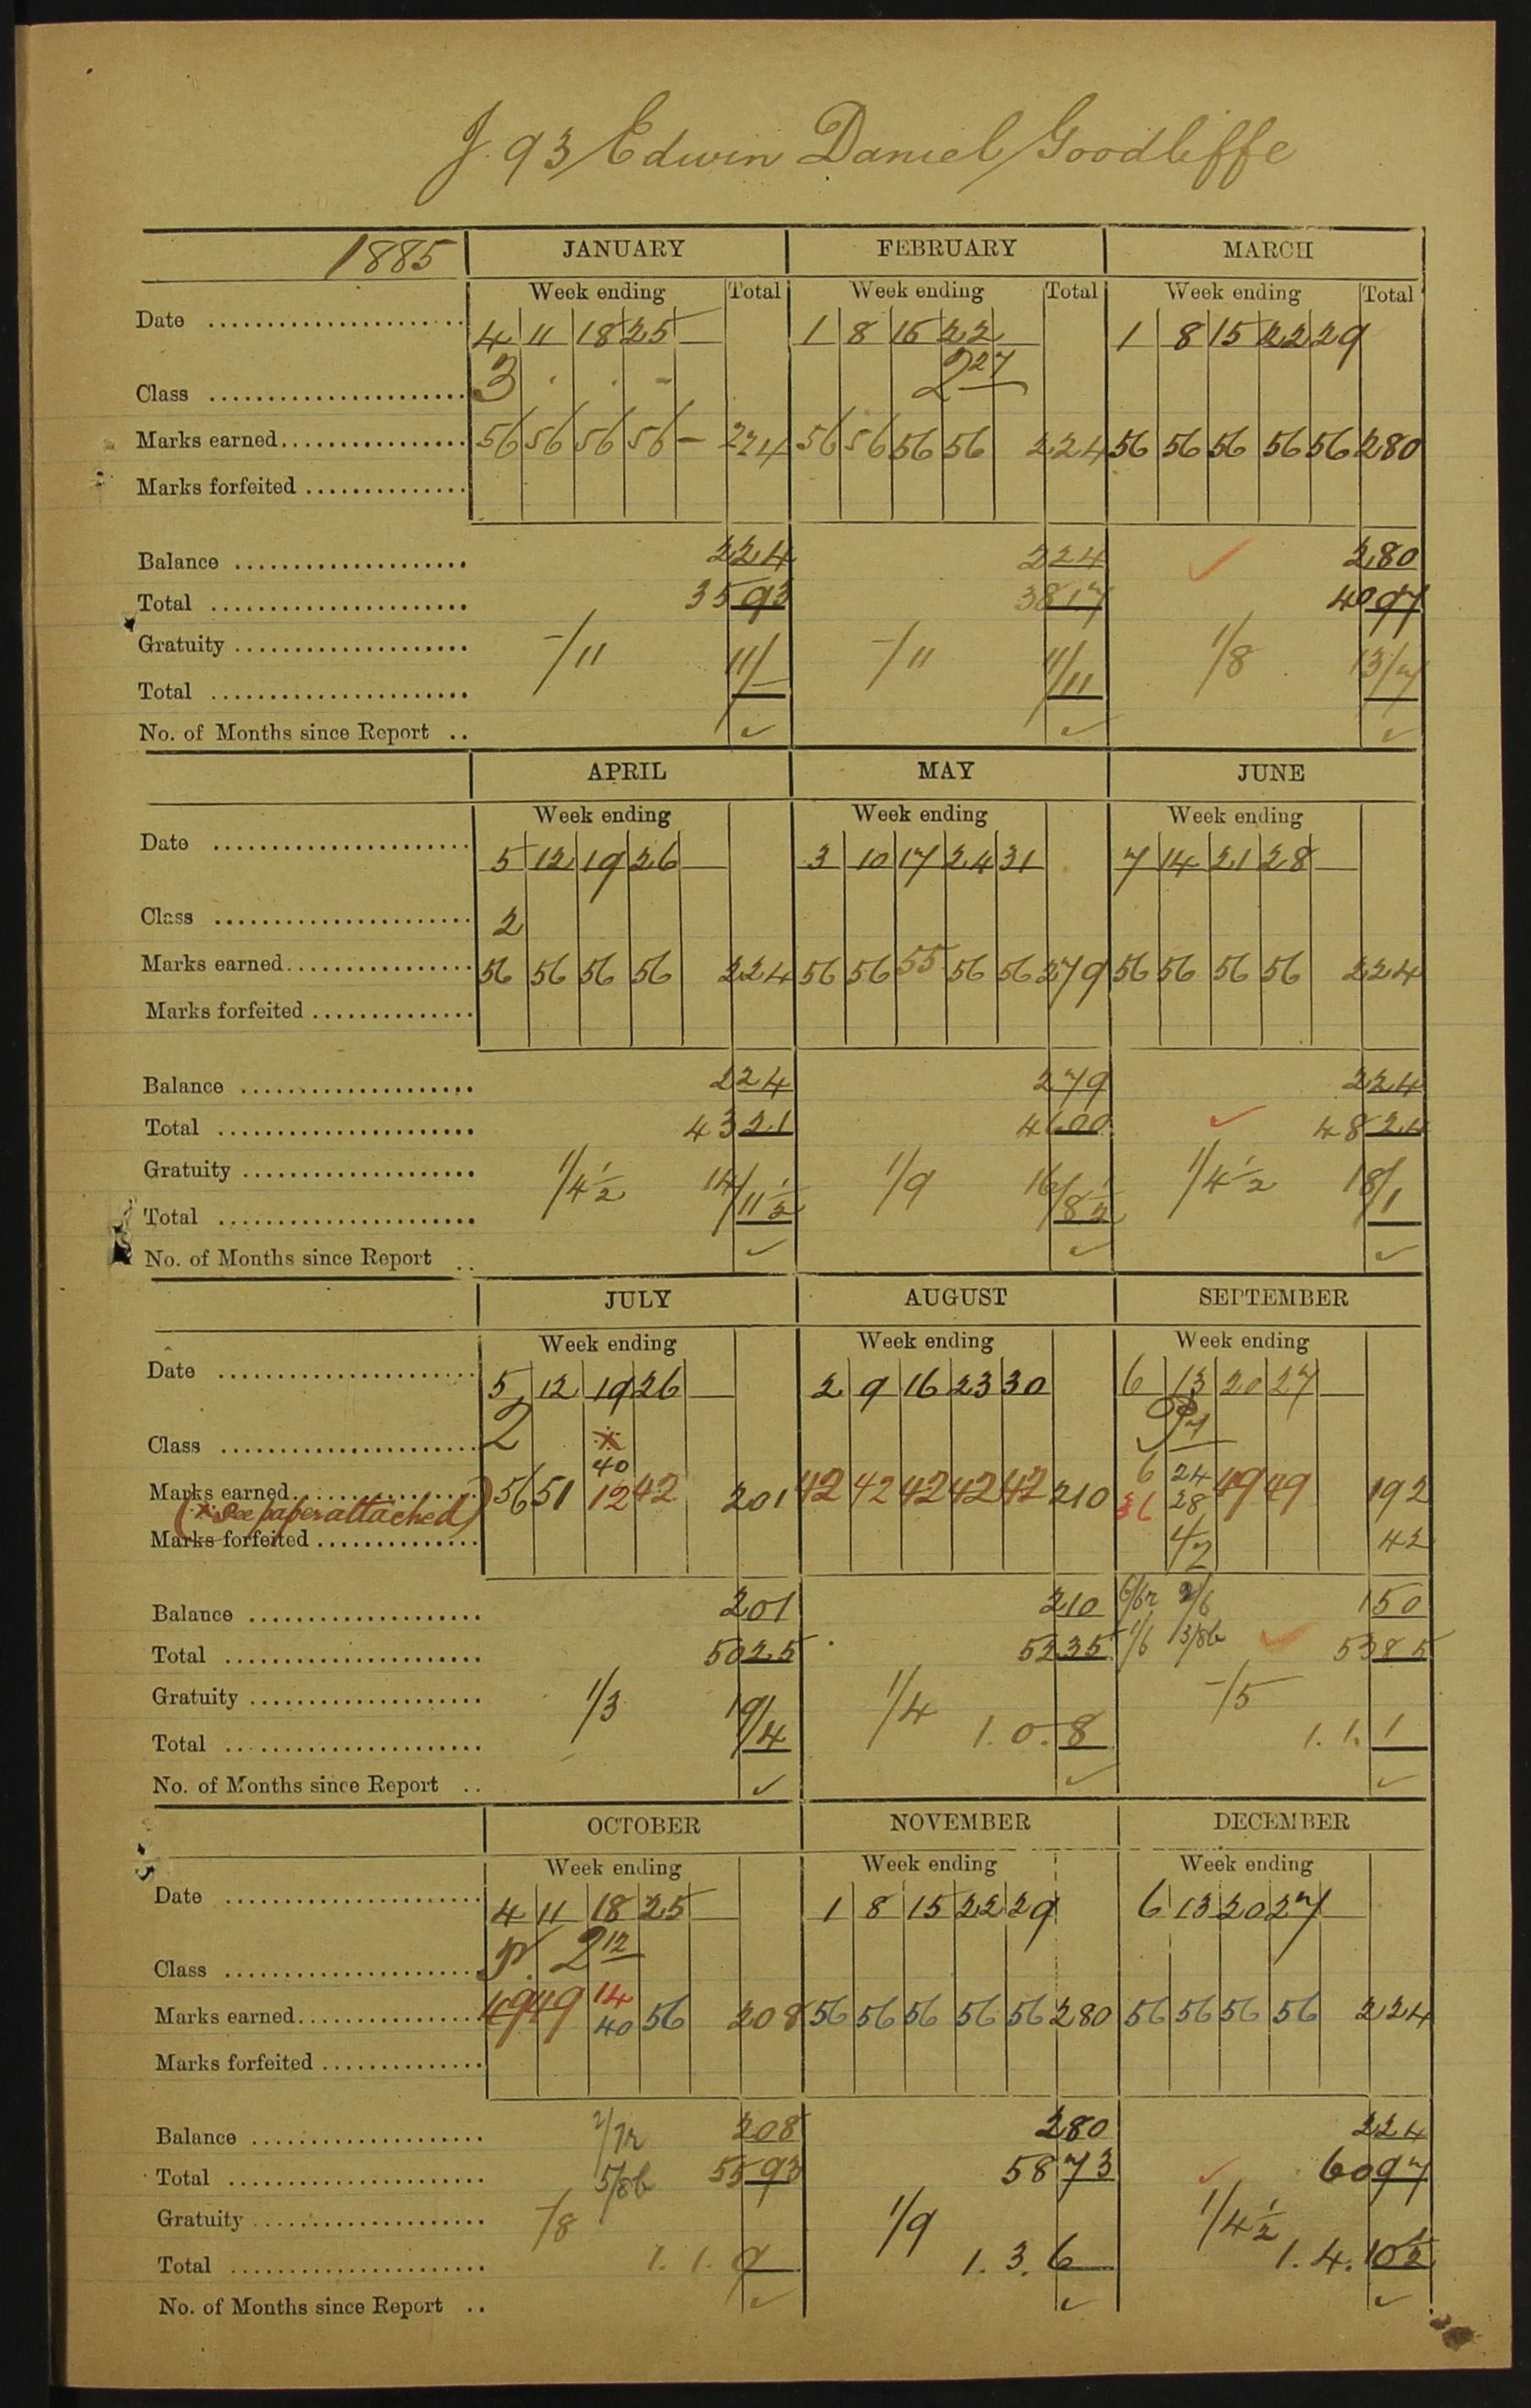 J. 93 Edwin Daniel Goodliffe
1885 JANUARY FEBRUARY MARCH
Week ending Total Week ending Total Week ending Total
Date 4 11 18 25 — 1 8 15 22 — 1 8 15 22 29
Class 3 . . - 2 27
Marks earned 56 56 56 56 — 224 56 56 56 56 224 56 56 56 56 56 280
Marks forfeited
Balance 224 224 ✓ 280
Total 3593 3817 4097
Gratuity -/11 -/11 1/8
Total 11/- 11/11 13/7
No. of Months since Report .. ✓ ✓ ✓
APRIL MAY JUNE
Week ending Week ending Week ending
Date 5 12 19 26 — 3 10 17 24 31 7 14 21 28 —
Class 2
Marks earned 56 56 56 56 224 56 56 55 56 56 279 56 56 56 56 224
Marks forfeited
Balance 224 279 224
Total 4321 4600 ✓ 4824
Gratuity 1/4½ 1/9 1/4½
Total 14/11½ 16/8½ 18/1
No. of Months since Report .. ✓ ✓ ✓
JULY AUGUST SEPTEMBER
Week ending Week ending Week ending
Date 5 12 19 26 — 2 9 16 23 30 6 13 20 27 —
Class 2 * 
40 6 24
Marks earned 56 51 12 42 201 42 42 42 42 42 210 36 28 49 49 192
(* see paper attached)
Marks forfeited 42 42
Balance 201 210 150
Total 5025 5235 ✓ 5385
Gratuity 1/3 1/4 -/5
Total 19/4 1. 0. 8 1. 1. 1
No. of Months since Report .. ✓ ✓ ✓
OCTOBER NOVEMBER DECEMBER
Week ending Week ending Week ending
Date 4 11 18 25 — 1 8 15 22 29 6 13 20 27 —
Class P. 2 12
14
Marks earned 49 49 40 56 208 56 56 56 56 56 280 56 56 56 56 224
Marks forfeited
Balance 208 280 224
Total 5593 5873 ✓ 6097
Gratuity -/8 1/9 1/4½
Total 1. 1. 9 1. 3. 6 1. 4. 10½
No. of Months since Report .. ✓ ✓ ✓